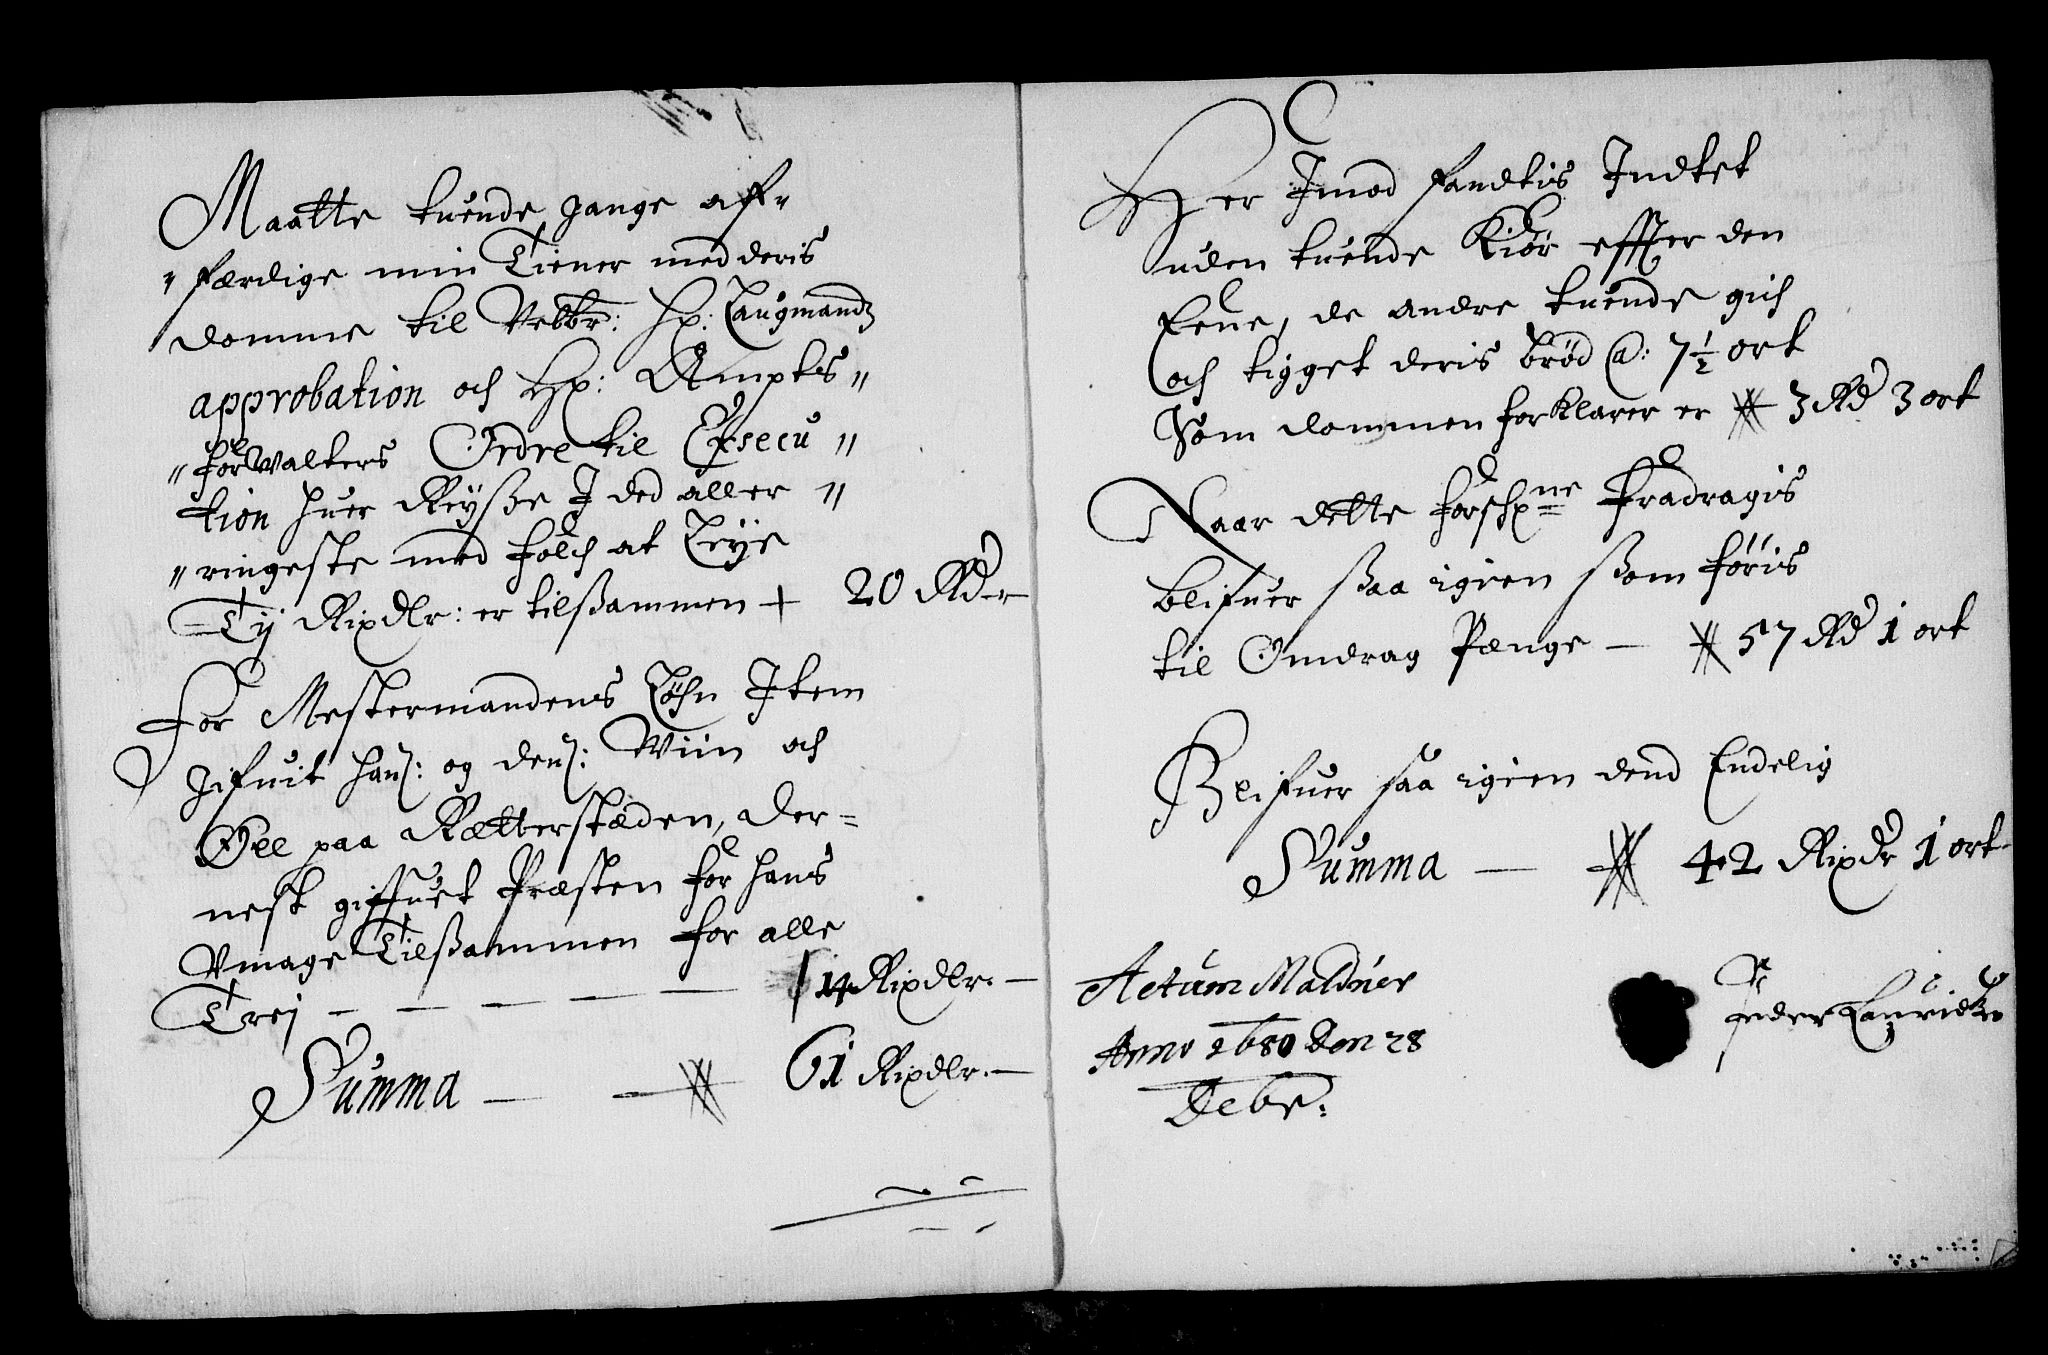 Maatte tuende gange af-
færdige min Tiener med deris
domme til Velbr: Hr: Laugmandz
approbation och Hr: Ampts"
"forwalters Ordre til Execu"
tion huer Reysse I ded aller"
"ringeste med folch at Leye
Tij Rixdlr: er tilssammen + 20 Rd
For Mestermandens Løhn Item
gifuit ham: og dem: Wiin och
Øll paa Rætterstæden, der=
nest giffuet Præsten for hans
Vmage Tilssammen for alle
Trej — — — — — 14 Rixdlr. —
Summa — 61 Rixdlr. —
Her Imod fandtis Indtet
uden tuende Kiør effter den
Eene, de andre tuende gich
och tigget deris brød a: 7½ ort
Som dommen forklarer er 3 Rd 3 ort
Naar dette forschr:ne fradragis
blifuer ssaa igien ssom føris
til Omdrag Pænge — 57 Rd 1 ort
Blifuer saa igien dend Endelig
Summa — 42 Rixdr 1 ort
Actum Maldnes
Anno 1680 den 28
Decbr:
Peder Lauridtz